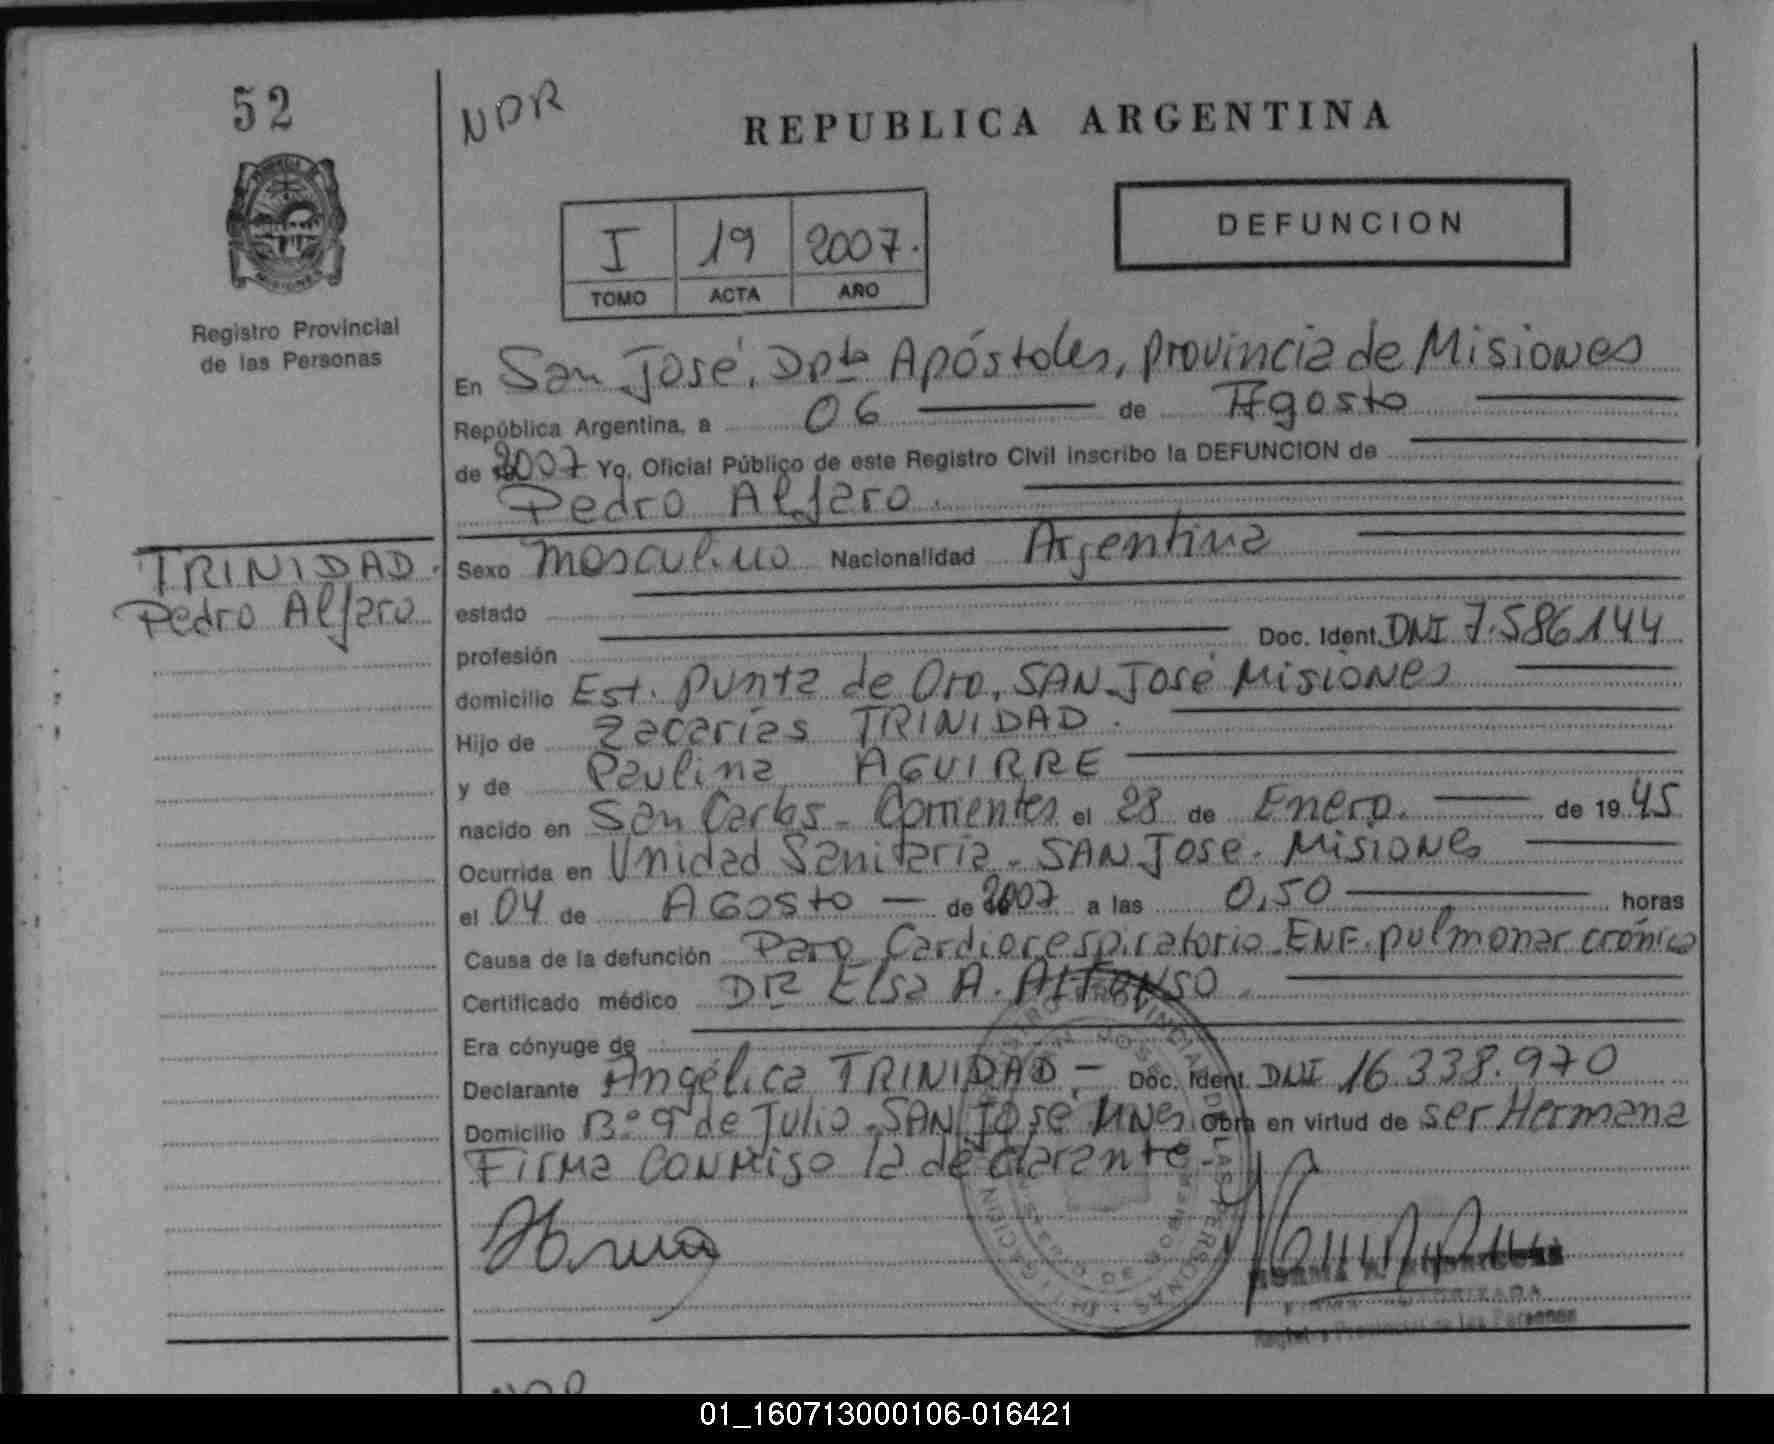 52
NDR
REPUBLICA ARGENTINA
DEFUNCION
I 19 2007.
TOMO ACTA AÑO
Registro Provincial
de las Personas
En San José, Dpto Apóstoles, provincia de Misiones
República Argentina, a 06 de Agosto
de 2007 Yo, Oficial Público de este Registro Civil inscribo la DEFUNCION de
Pedro Alfaro.
TRINIDAD.
Pedro Alfaro
Sexo Masculino Nacionalidad Argentina
estado
profesión Doc. Ident. DNI 7.586.144
domicilio Est. Punta de Oro, SAN José Misiones
Hijo de Zacarías TRINIDAD.
y de Paulina AGUIRRE
nacido en San Carlos - Corrientes el 28 de Enero. de 19 45
Ocurrida en Unidad Sanitaria - SAN José. Misiones
el 04 de AGosto — de 2007 a las 0,50 horas
Causa de la defunción Paro Cardiorespiratorio - ENF. pulmonar crónica
Certificado médico DR Elsa A. Alfonso.
Era cónyuge de
Declarante Angélica TRINIDAD - Doc. Ident. DNI 16.338.970
Domicilio B.º 9 de Julio - SAN José Mnes Obra en virtud de ser Hermana
Firma conmigo la declarante
FIRMA AUTORIZADA
Registro Provincial de las Personas
01_160713000106-016421